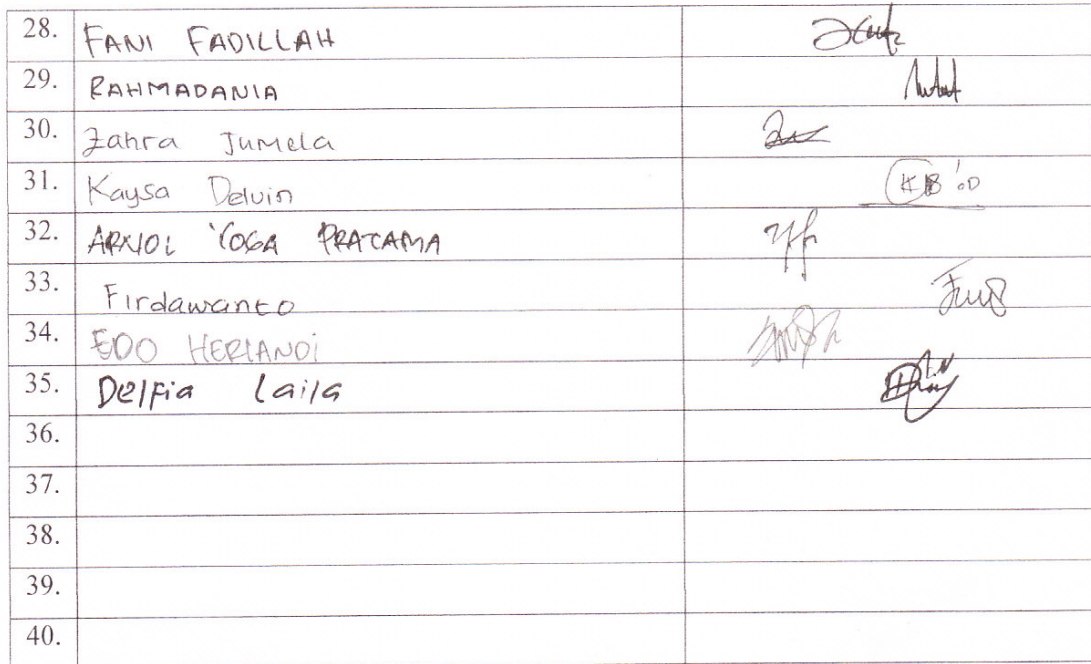 28. FANI FADILLAH
29. RAHMADANIA
30. Zahra Jumela
31. Kaysa Delvin
32. YOGA PRATAMA
33. Firdawanto
34. EDO HERIANDI
35. Delfia Laila
36.
37.
38.
39.
40.